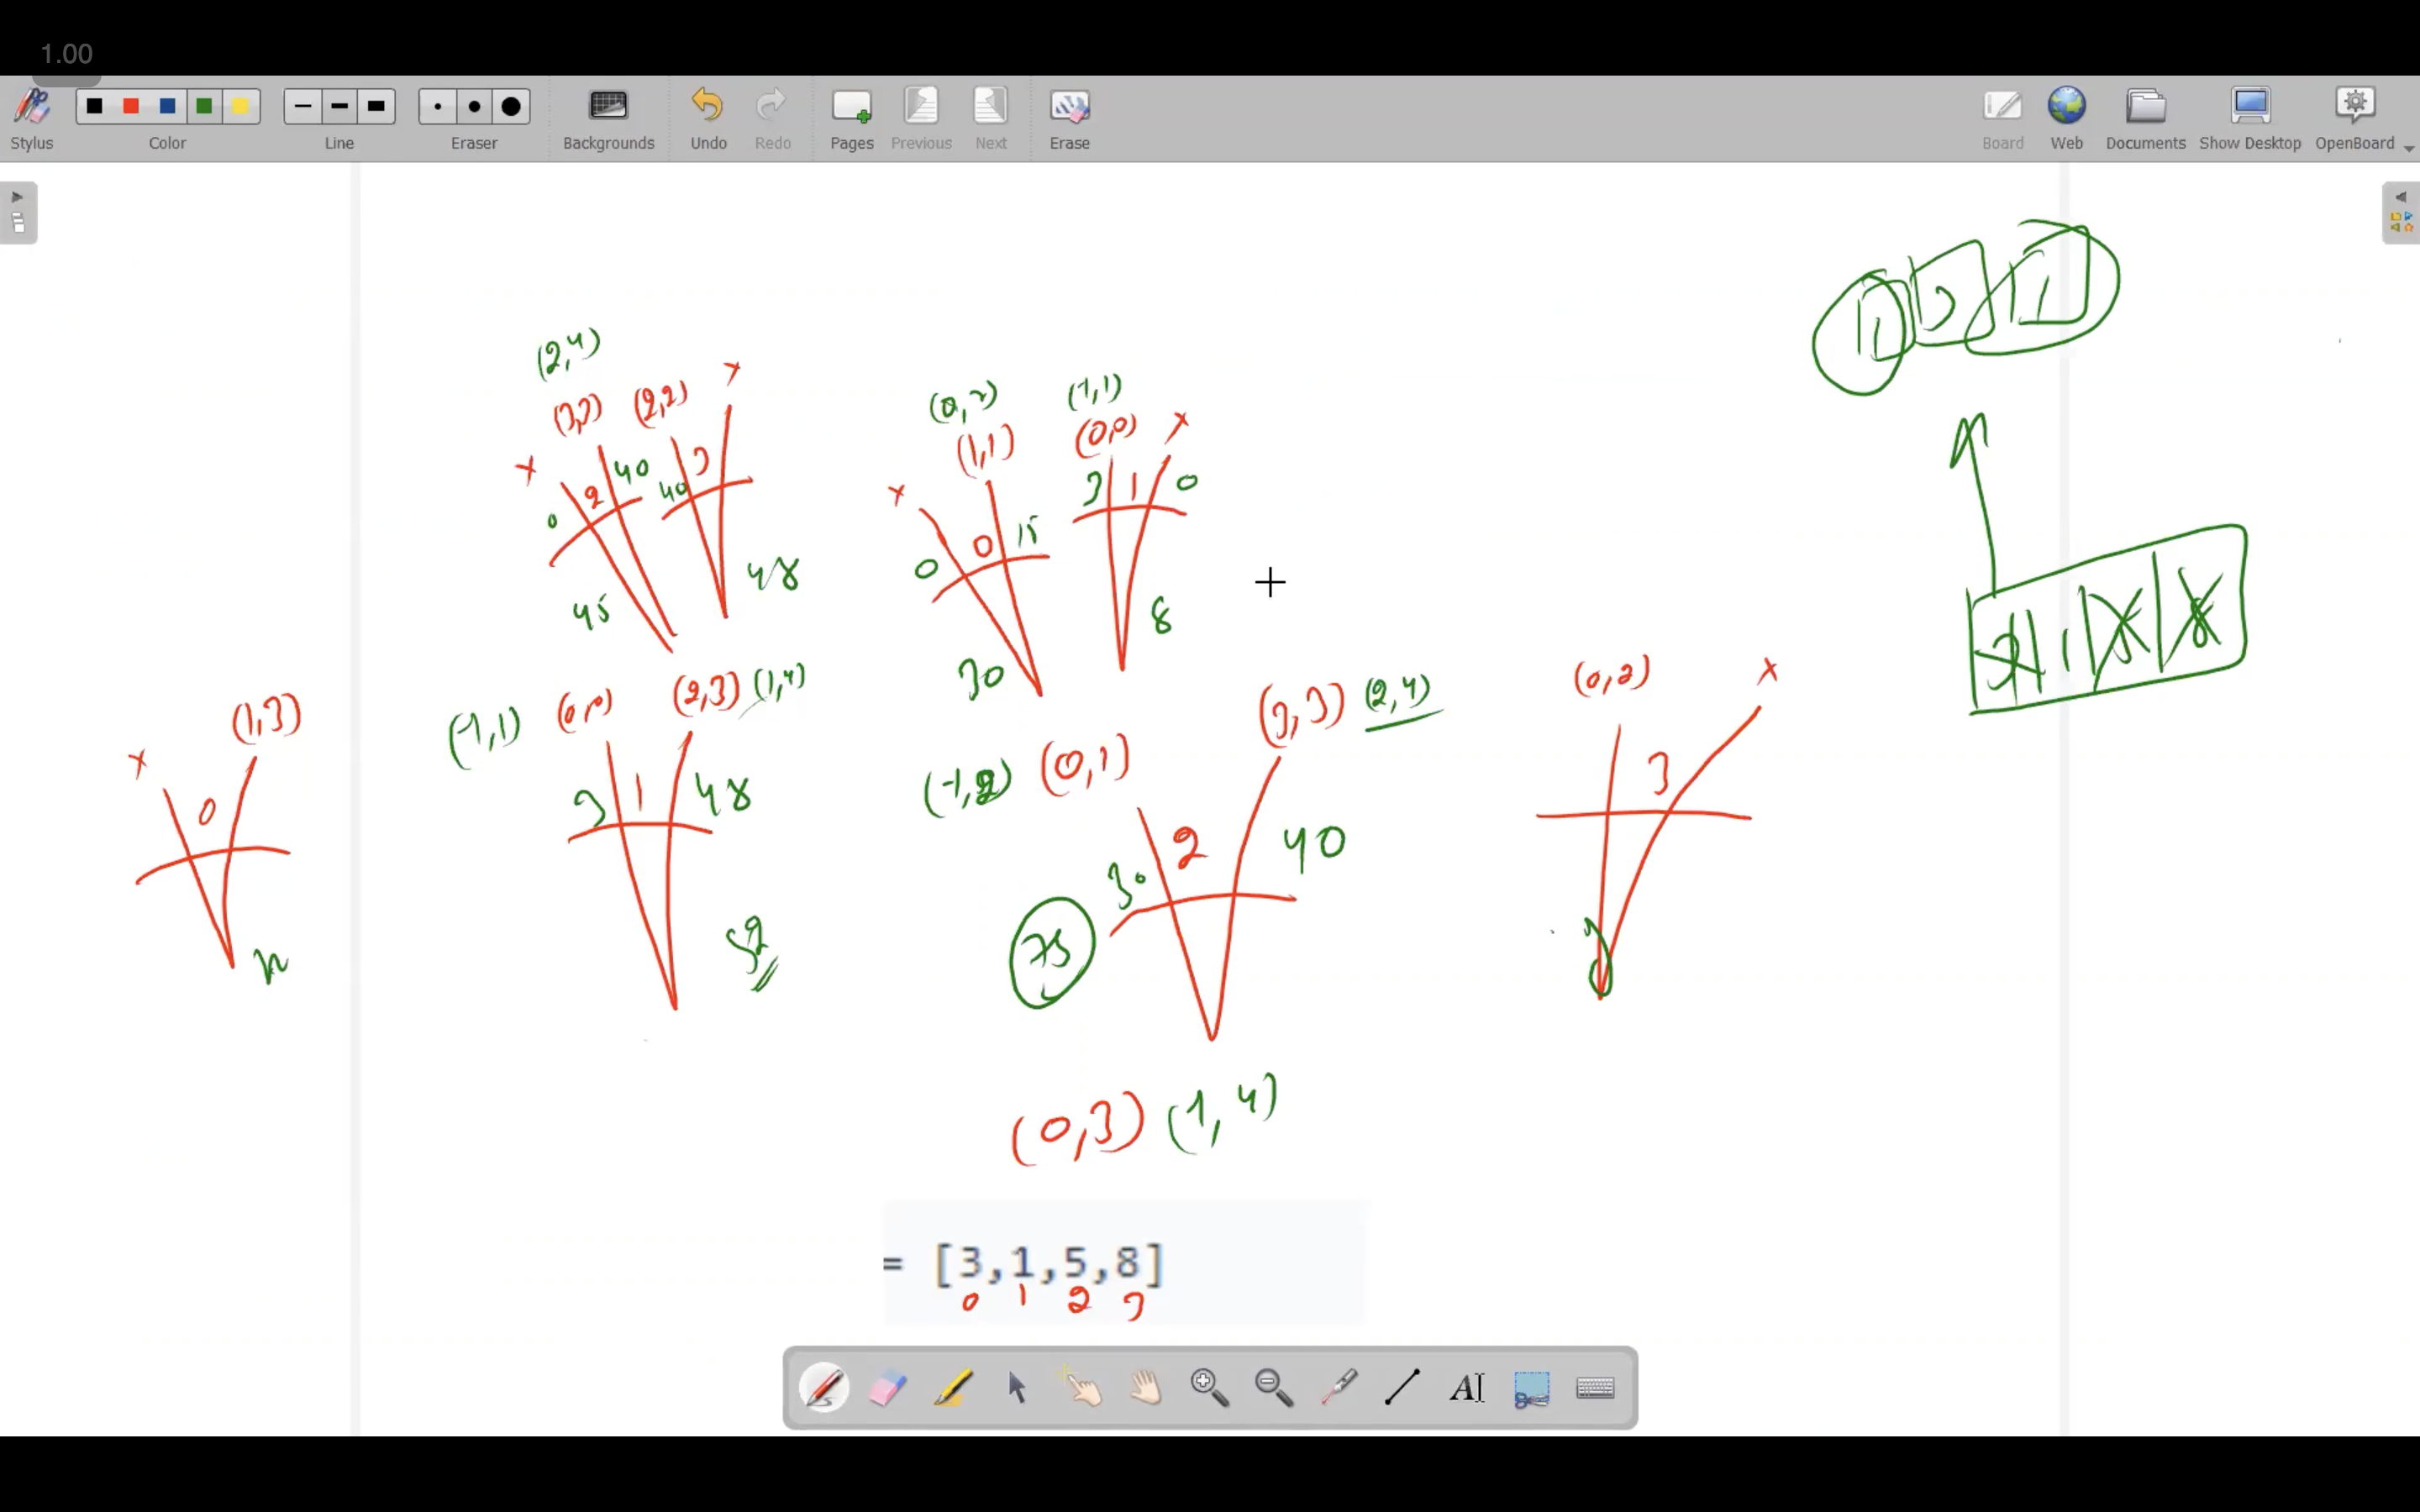 1.00
Stylus Color Line Eraser Backgrounds Undo Redo Pages Previous Next Erase Board Web Documents Show Desktop OpenBoard
(2,4)
(3,3) (2,2) x
x 2 40 40 3
0
45 48
(0,2) (-1,1)
(1,1) (0,0) x
x 0 15 3 1 0
0
30 8
x (1,3)
0
(-1,1) (0,0) (2,3) (1,4)
3 1 48
52
(-1,2) (0,1) (3,3) (2,4)
30 2 40
75
(0,2) x
3
(0,3) (1,4)
= [3,1,5,8]
0 1 2 3
AI